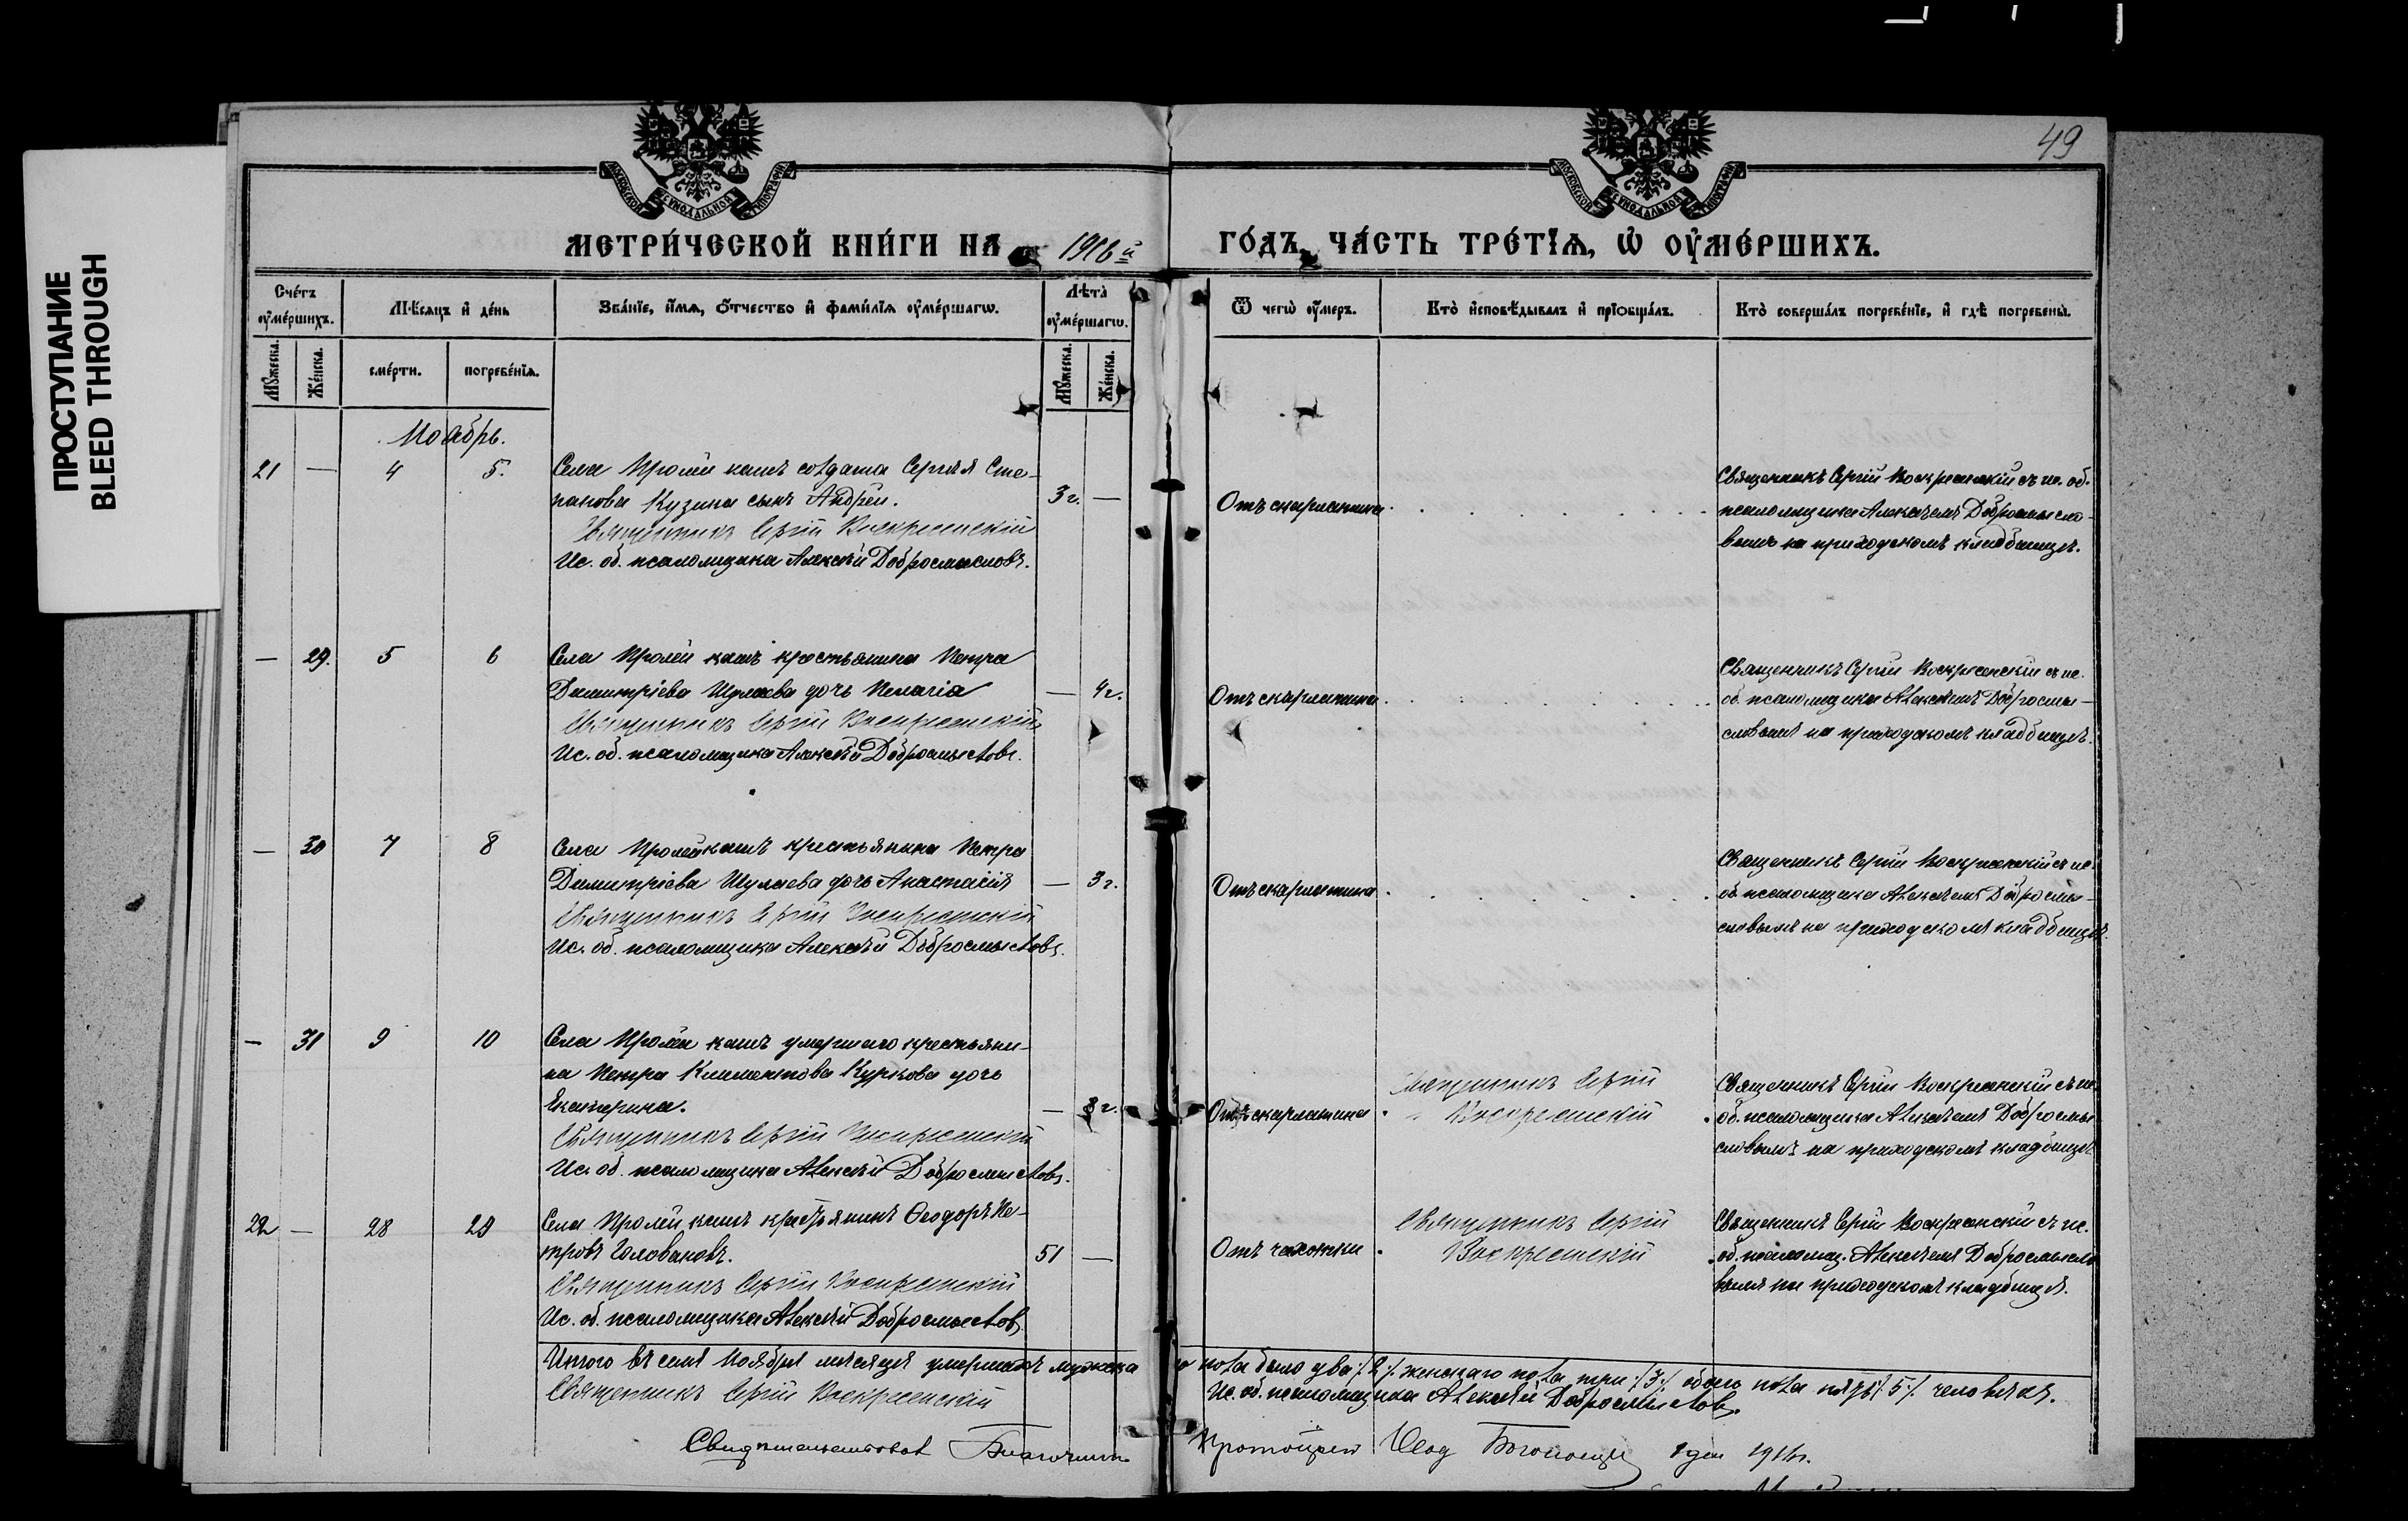 49
ПРОСТУПАНИЕ
BLEED THROUGH
МОСКОВСКОЙ СѴНОДАЛЬНОЙ ТИПОГРАФІИ
МОСКОВСКОЙ СѴНОДАЛЬНОЙ ТИПОГРАФІИ
МЕТРИ́ЧЕСКОЙ КНИ́ГИ НА 1916й ГО́ДЪ, ЧА́СТЬ ТРЕ́ТЇѦ, Ѡ ОУ҆МЕ́РШИХЪ.
Сче́тъ оу҆ме́ршихъ.
Мѣ́сяцъ и҆ де́нь
Зва́нїе, и҆́мѧ, ѻ҆́тчество и҆ фами́лїѧ оу҆ме́ршагѡ.
Лѣта̀ оу҆ме́ршагѡ.
Ѿ чегѡ̀ оу҆́меръ.
Кто̀ и҆сповѣ́дывалъ и҆ прїѡбща́лъ.
Кто̀ соверша́лъ погребе́нїе, и҆ гдѣ̀ погребены̀.
Мꙋ́жеска.
Же́нска.
сме́рти.
погребе́нїѧ.
Мꙋ́жеска.
Же́нска.
Ноябрь.
21 — 4 5. Села Пролей кашъ солдата Сергѣя Сте-
панова Кузина сынъ Андрей. 3 г. —
Священникъ Сергій Воскресенскій
Ис. об. псаломщика Алексѣй Добросмысловъ.
Отъ скарлатины
Священникъ Сергій Воскресенскій съ ис. об.
псаломщика Алексѣемъ Добросмысло-
вымъ на приходскомъ кладбищѣ.
— 29. 5 6 Села Пролей кашъ крестьянина Петра
Димитріева Шулаева дочь Пелагія — 4 г.
Священникъ Сергій Воскресенскій
Ис. об. псаломщика Алексѣй Добросмысловъ.
Отъ скарлатины
Священникъ Сергій Воскресенскій съ ис.
об. псаломщика Алексѣемъ Добросмы-
словымъ на приходскомъ кладбищѣ.
— 30 7 8 Села Пролей кашъ крестьянина Петра
Димитріева Шулаева дочь Анастасія — 3 г.
Священникъ Сергій Воскресенскій
Ис. об. псаломщика Алексѣй Добросмысловъ.
Отъ скарлатины
Священникъ Сергій Воскресенскій съ ис.
об. псаломщика Алексѣемъ Добросмы-
словымъ на приходскомъ кладбищѣ.
— 31 9 10 Села Пролей кашъ умершаго крестьяни-
на Петра Климентова Куркова дочь
Екатерина. — 8 г.
Священникъ Сергій Воскресенскій
Ис. об. псаломщика Алексѣй Добросмысловъ.
Отъ скарлатины
Священникъ Сергій
Воскресенскій
Священникъ Сергій Воскресенскій съ ис.
об. псаломщика Алексѣемъ Добросмы-
словымъ на приходскомъ кладбищѣ.
22 — 28 29 Села Пролей кашъ крестьянинъ Ѳеодоръ Пе-
тровъ Головановъ. 51 —
Священникъ Сергій Воскресенскій
Ис. об. псаломщика Алексѣй Добросмысловъ.
Отъ чахотки
Священникъ Сергій
Воскресенскій
Священникъ Сергій Воскресенскій съ ис.
об. псаломщ. Алексѣемъ Добросмысло
вымъ на приходскомъ кладбищѣ.
Итого въ семъ Ноябрѣ мѣсяцѣ умершихъ мужска го пола было два ./.2./. женскаго пола три ./.3./. обоего пола пять ./.5./. человѣкъ.
Священникъ Сергій Воскресенскій
Ис. об. псаломщика Алексѣй Добросмысловъ.
Свидѣтельствовалъ Благочинн. Протоіерей